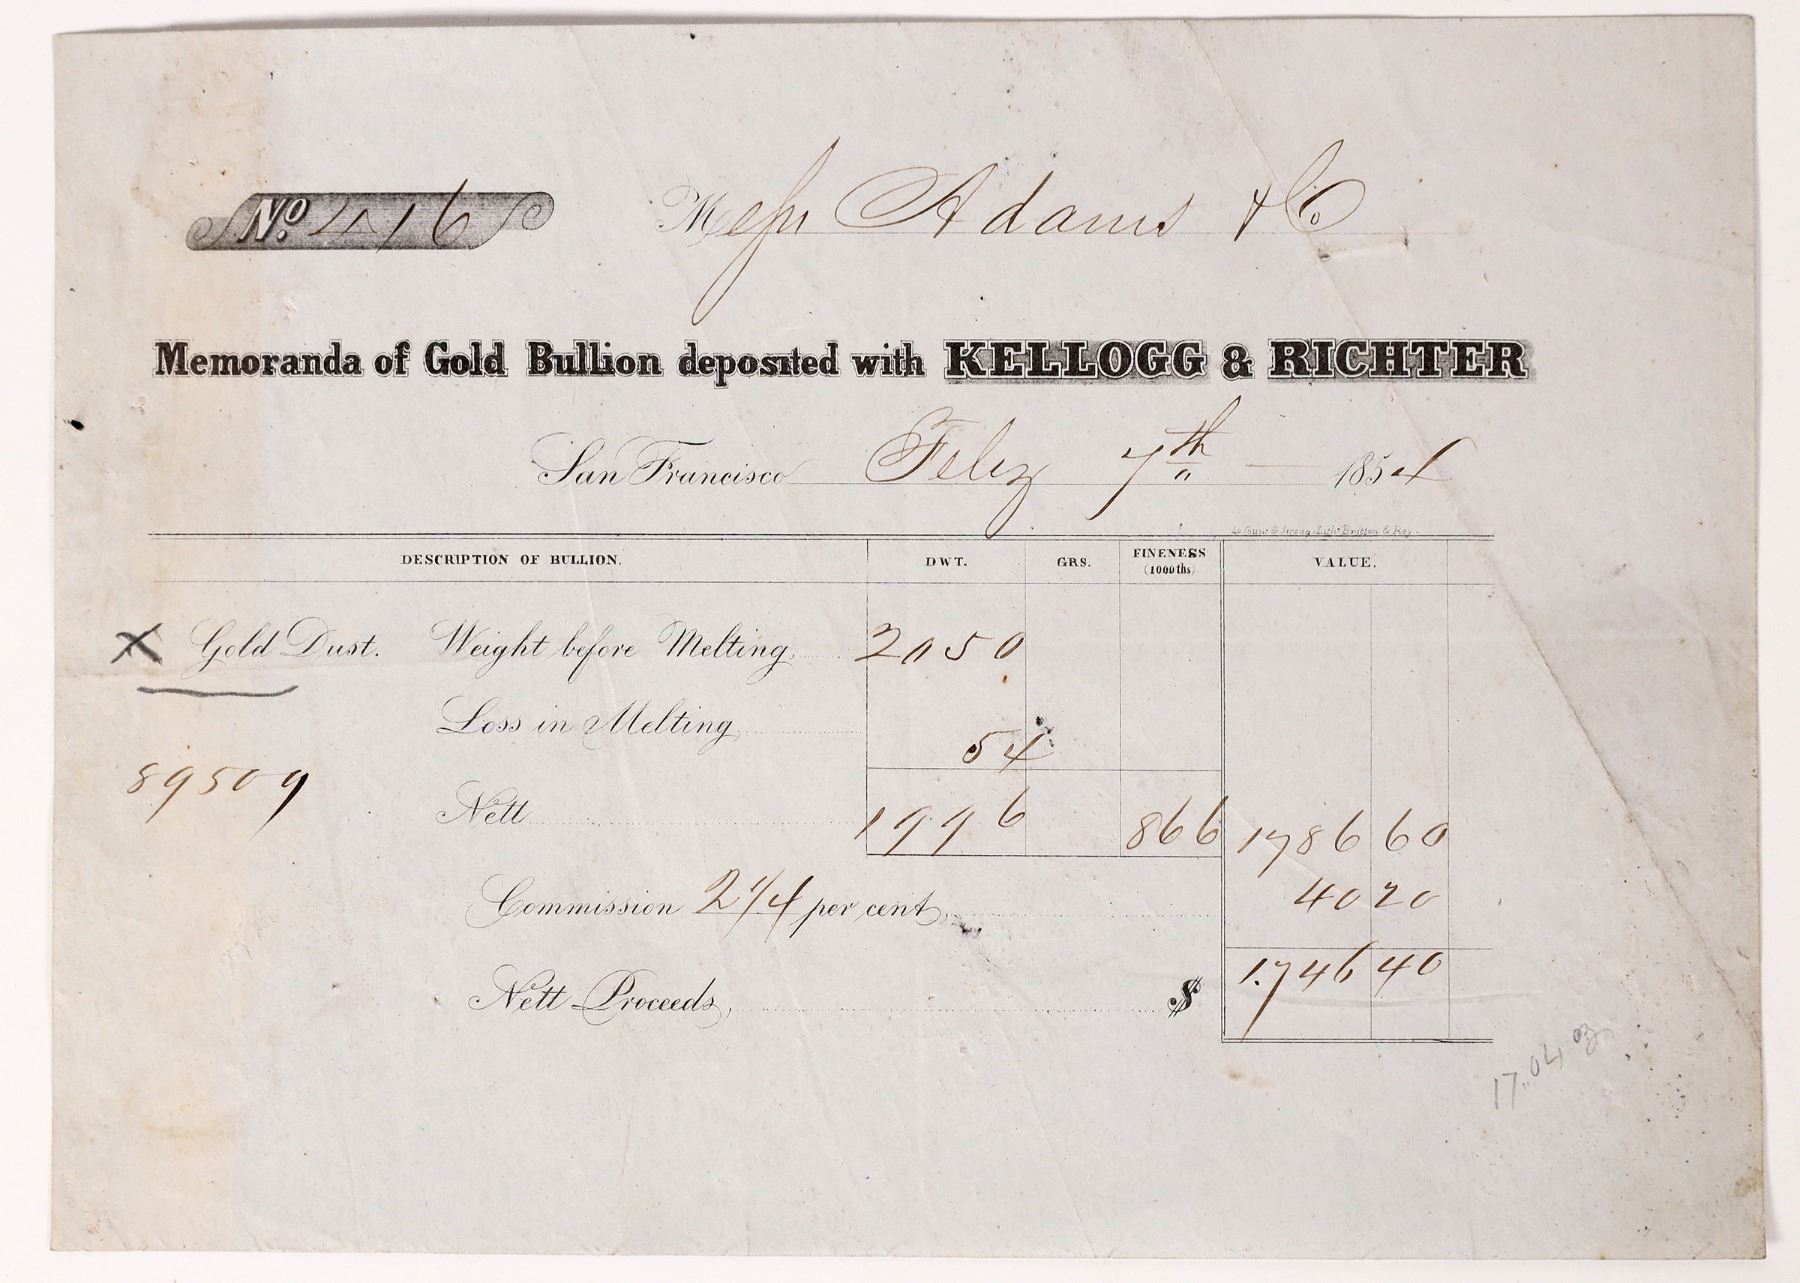 No. 416
Messr Adams & Co
Memoranda of Gold Bullion deposited with KELLOGG & RICHTER
San Francisco Feby 7th 1854
Lith. Britton & Rey.
DESCRIPTION OF BULLION. DWT. GRS. FINENESS (1000ths) VALUE.
X Gold Dust. Weight before Melting 2050
Loss in Melting 54
89509
Nett 1996 866 1786 60
Commission 2 1/4 per cent, 40 20
Nett Proceeds, $ 1746 40
17.04 oz